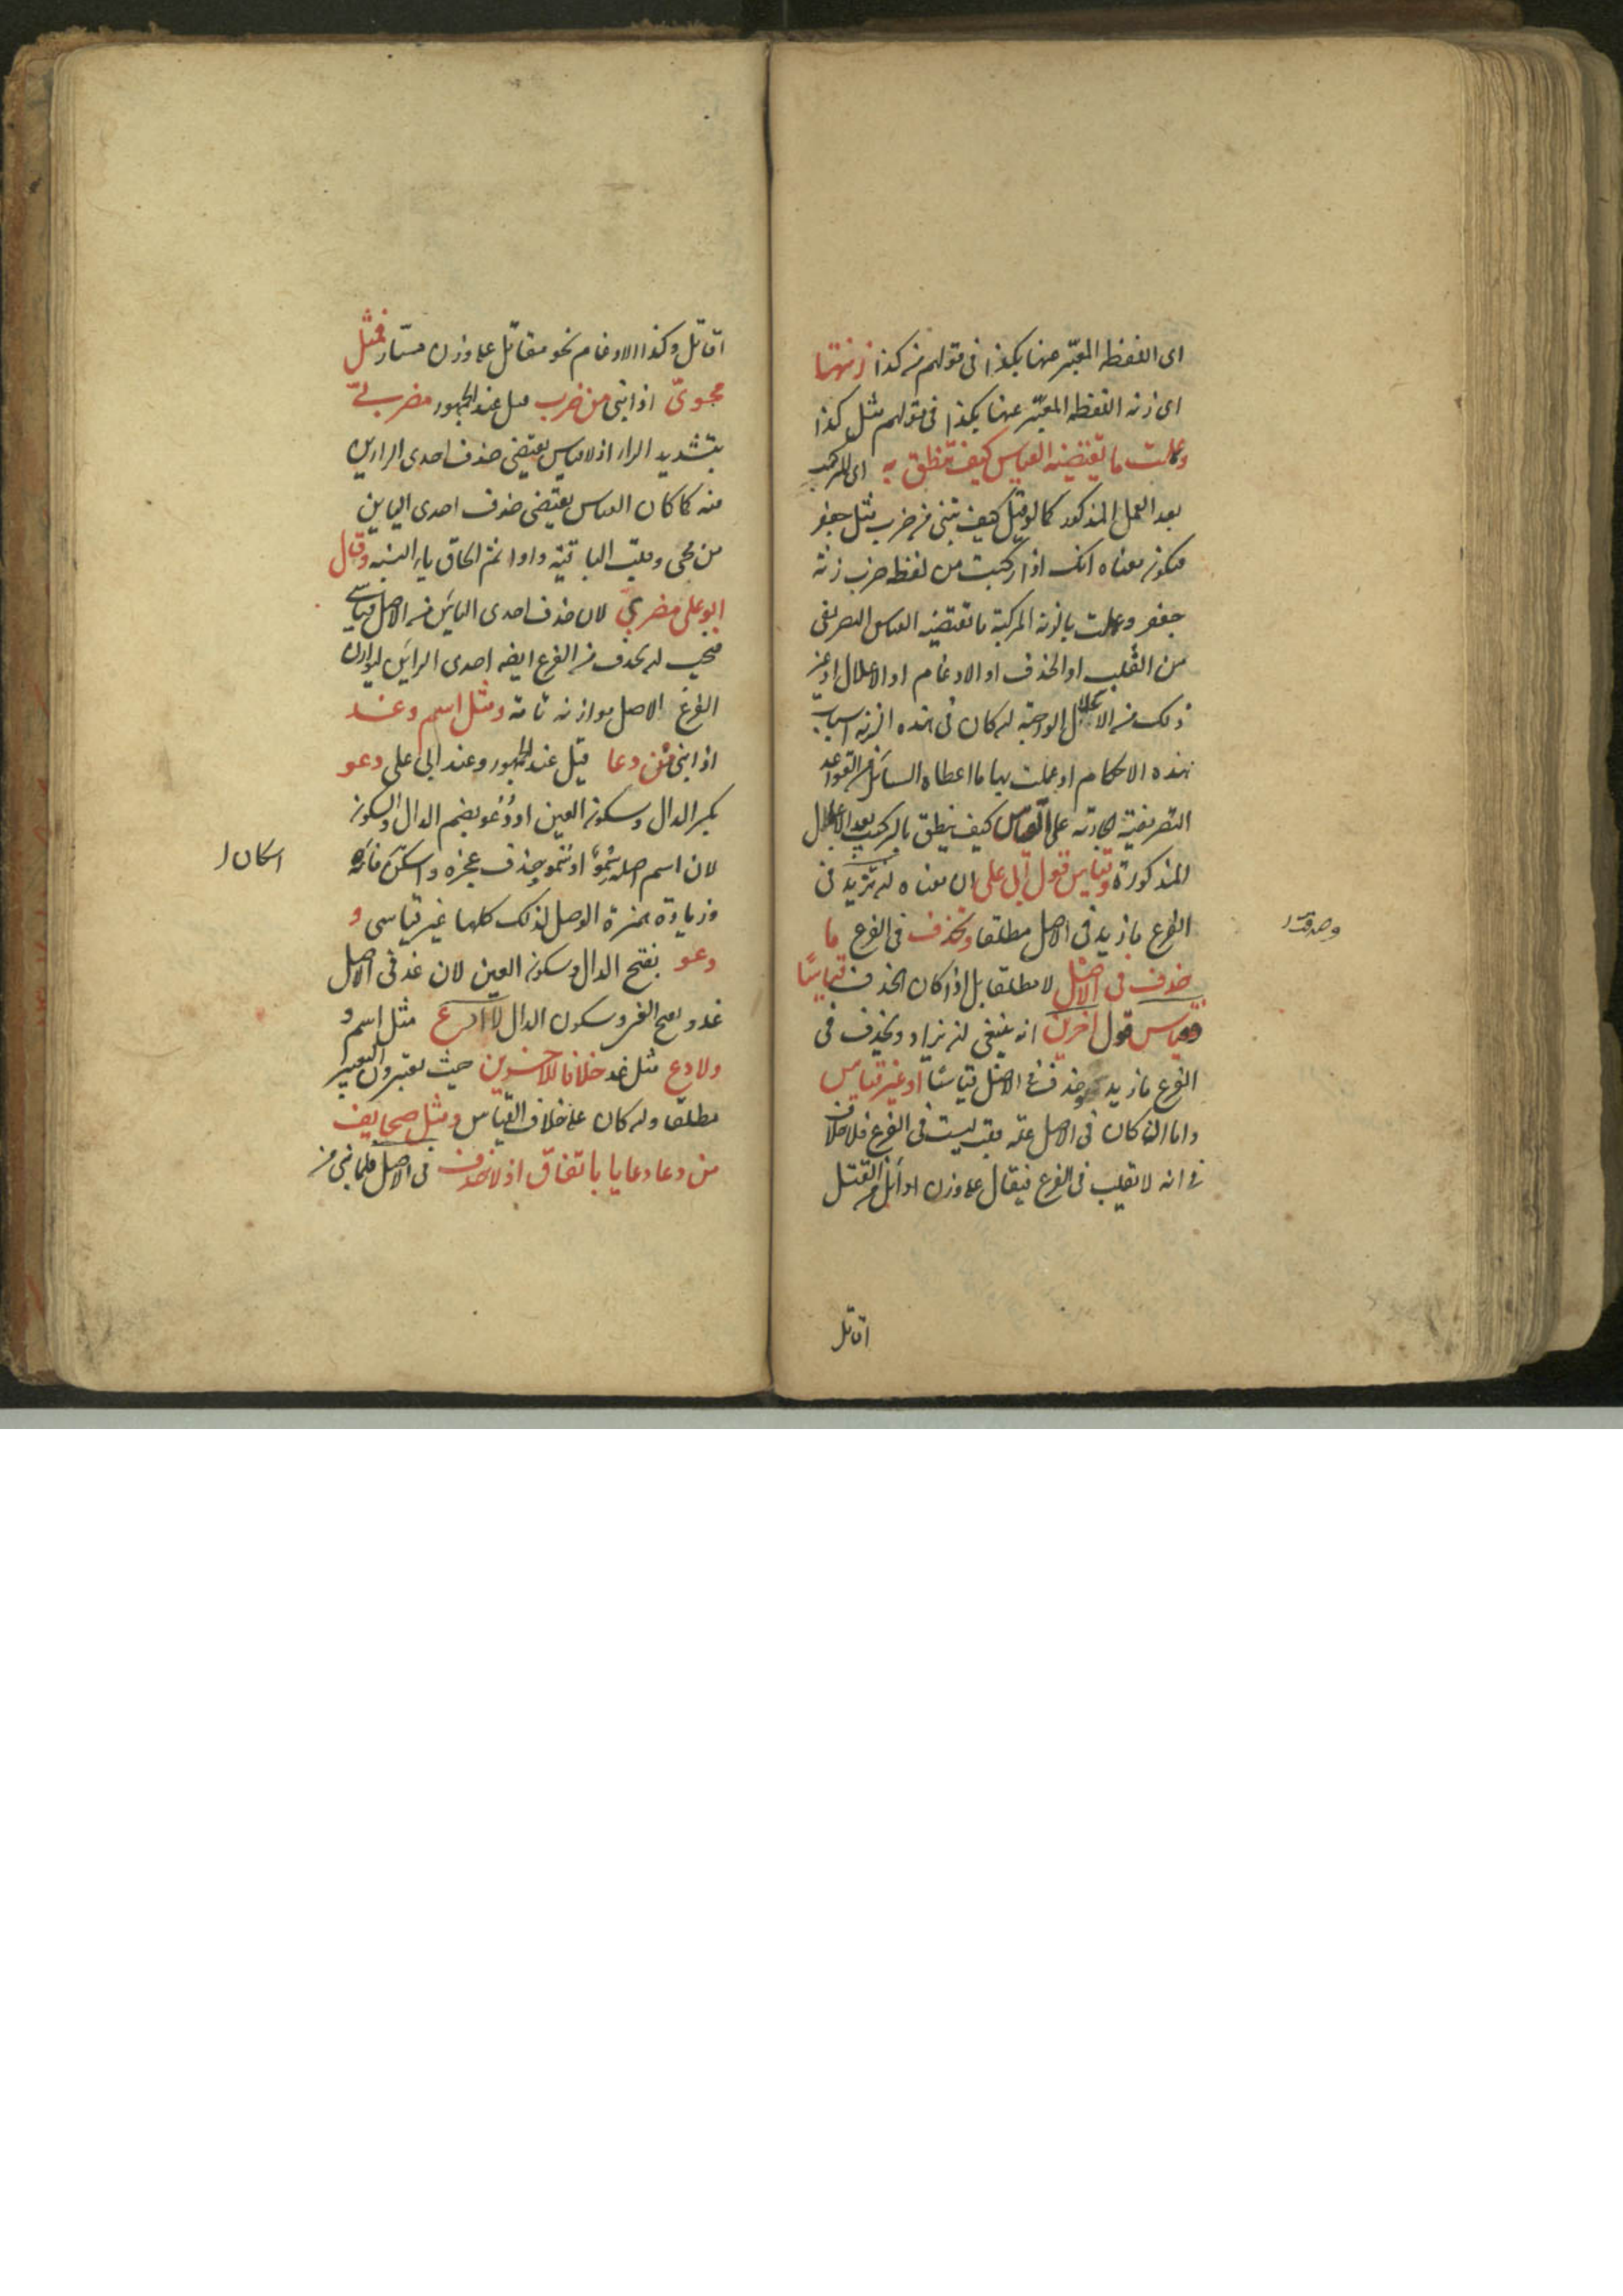 اى اللفظه المعبّر عنها بكذا فى قولهم من كذا زنتها
اى زنه اللفظه المعبّر عنها بكذا فى قولهم مثل كذا
وعملت ما تقتضيه القياس كيف تنطق به اى المركب
بعد العمل المذكور كما لو قيل كيف تبنى من ضرب مثل جعفر
فيكون معناه انك اذا ركبت من لفظه ضرب زنة
جعفر وعملت بالزنه المركبة ما تقتضيه القياس التصريفى
من القلب او الحذف او الادغام او الاعلال او غير
ذلك من الاعلال الواجبة ان كان فى هذه الزنه اسباب
هذه الاحكام او عملت بها ما اعطاه السائل من القواعد
التصريفية الجارية على القياس كيف ينطق بالمركب بعد الاعلال
المذكورة وقياس قول ابى على ان معناه ان تزيد فى
الفرع ما زيد فى الاصل مطلقا وتحذف فى الفرع ما
حذف فى الاصل لا مطلقا بل اذا كان الحذف قياسًا
وقياس قول اخرين انه ينبغى ان يزاد ويحذف فى
الفرع ما زيد وحذف فى الاصل قياسًا او غير قياس
واما اذا كان فى الاصل علة قلب ليست فى الفرع فلا خلاف
فى انه لا تقلب فى الفرع فيقال على وزن اوائل من القتل
اقاتل
وصدقت
اقاتل وكذا الادغام نحو مقاتل على وزن مسّار فمثل
محوىّ اذا بنى من ضرب قيل عند الجمهور مضربىّ
بتشديد الراء اذ لا قياس يقتضى حذف احدى الرائين
منه كما كان القياس يقتضى حذف احدى اليائين
من محى وقلب الباقية واوا ثم الحاق ياء النسبه وقال
ابو على مضرىّ لان حذف احدى اليائين من الاصل قياسى
فيجب ان يحذف من الفرع ايضه احدى الرائين ليوازن
الفرع الاصل موازنه تامة ومثل اسم وغد
اذا بنى من دعا قيل عند الجمهور وعند ابى على دعو
بكسر الدال وسكون العين او دُعو بضم الدال والسكون
لان اسم اصله سِموٌ او سُمو حذف عجزه واسكن فائه
اسكان
وزيادة همزة الوصل لذلك كلها غير قياسى و
دعو بفتح الدال وسكون العين لان غد فى الاصل
غدو بفتح الغين وسكون الدال لا ادع مثل اسم و
ولا دع مثل غد خلافا للاخرين حيث يعتبرون التغيير
مطلقا وان كان على خلاف القياس ومثل صحايف
من دعا دعايا باتفاق اذ لا حذف فى الاصل فلما بنى من